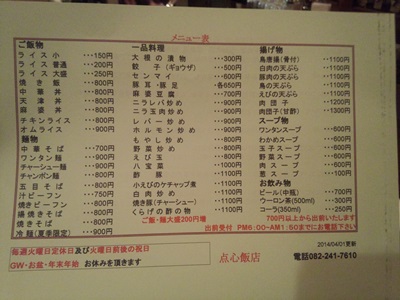 メニュー表
ご飯物
ライス 小 ・・・150円
ライス 普通 ・・・200円
ライス 大盛 ・・・250円
焼き飯 ・・・800円
中華丼 ・・・800円
天津丼 ・・・800円
麻婆丼 ・・・800円
チキンライス ・・・800円
オムライス ・・・900円
麺物
中華そば ・・・700円
ワンタン麺 ・・・800円
チャーシュー麺 ・・・900円
チャンポン麺 ・・・800円
五目そば ・・・800円
汁ビーフン ・・・750円
焼きビーフン ・・・800円
揚焼きそば ・・・800円
焼きそば ・・・800円
冷麺(夏季限定) ・・・900円
一品料理
大根の漬物 ・・・300円
餃子(ギョウザ) ・・・500円
センマイ ・・・600円
豚耳・豚足 ・・・各650円
麻婆豆腐 ・・・700円
ニラレバ炒め ・・・900円
ニラ玉肉炒め ・・・900円
レバー炒め ・・・900円
ホルモン炒め ・・・900円
もやし炒め ・・・800円
野菜炒め ・・・900円
えび玉 ・・・1100円
八宝菜 ・・・1100円
酢豚 ・・・1100円
小えびのケチャップ煮 ・・・1100円
白肉炒め ・・・1100円
焼き豚(チャーシュー) ・・・1100円
くらげの酢の物 ・・・1100円
ご飯・麺大盛200円増
揚げ物
鳥唐揚(骨付) ・・・1100円
白肉の天ぷら ・・・1100円
豚の天ぷら ・・・1100円
鳥の天ぷら ・・・1100円
えびの天ぷら ・・・1100円
肉団子 ・・・1200円
肉団子(甘酢) ・・・1300円
スープ物
ワンタンスープ ・・・600円
わかめスープ ・・・600円
玉子スープ ・・・600円
野菜スープ ・・・600円
肉スープ ・・・700円
えびスープ ・・・700円
お飲み物
ビール(中瓶) ・・・700円
ウーロン茶(500ml) ・・・300円
コーラ(350ml) ・・・250円
700円以上から出前いたします
出前受付 PM6:00~AM1:50までにお電話下さい
毎週火曜日定休日及び火曜日前後の祝日
GW・お盆・年末年始 お休みを頂きます
点心飯店
2014/04/01更新
電話082-241-7610